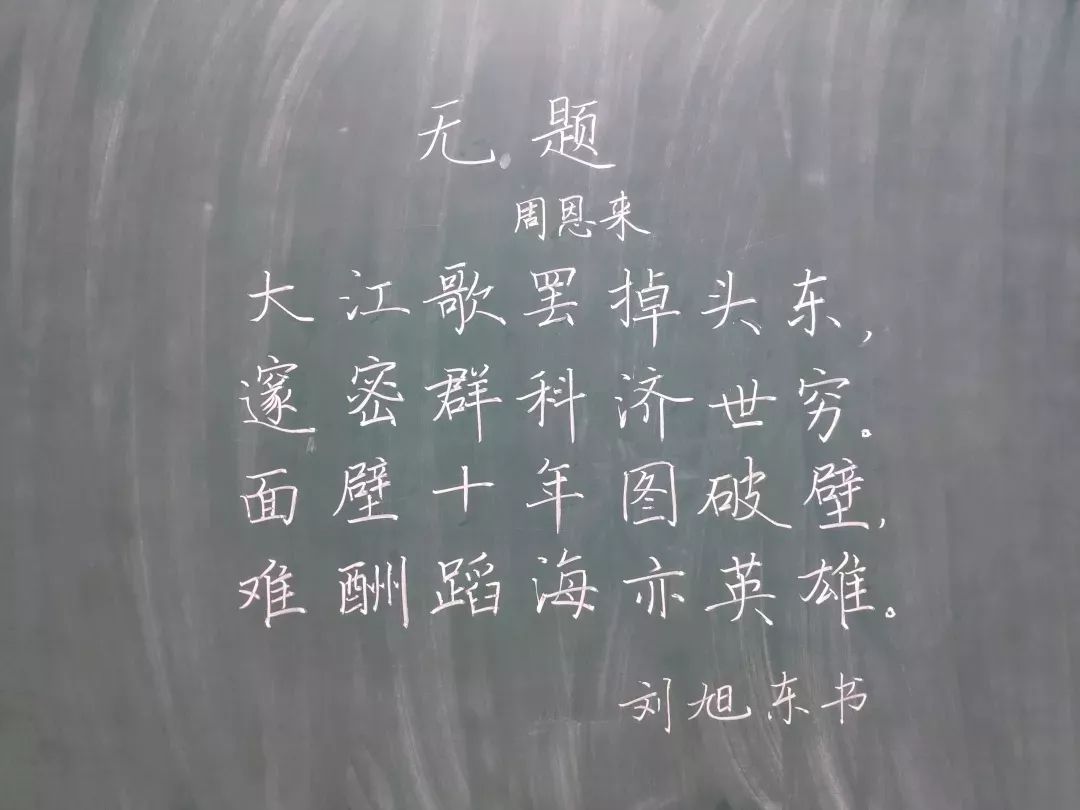 无题
周恩来
大江歌罢掉头东,
邃密群科济世穷。
面壁十年图破壁,
难酬蹈海亦英雄。
刘旭东书